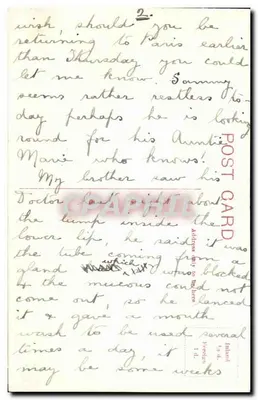 2.
wish, should you be
returning to Paris earlier
than Thursday you could
let me know. Sammy
seems rather restless to-
day perhaps he is looking
round for his Auntie
Marie who knows!
My brother saw his
Doctor last night about
the lump inside the
lower lip, he said it was
the tube coming from a
gland which was blocked
& the mucous could not
come out, so he lanced
it & gave a mouth
wash to be used several
times a day, it
may be some weeks
POST CARD
Address only to be here
Inland
½d.
Foreign
1d.